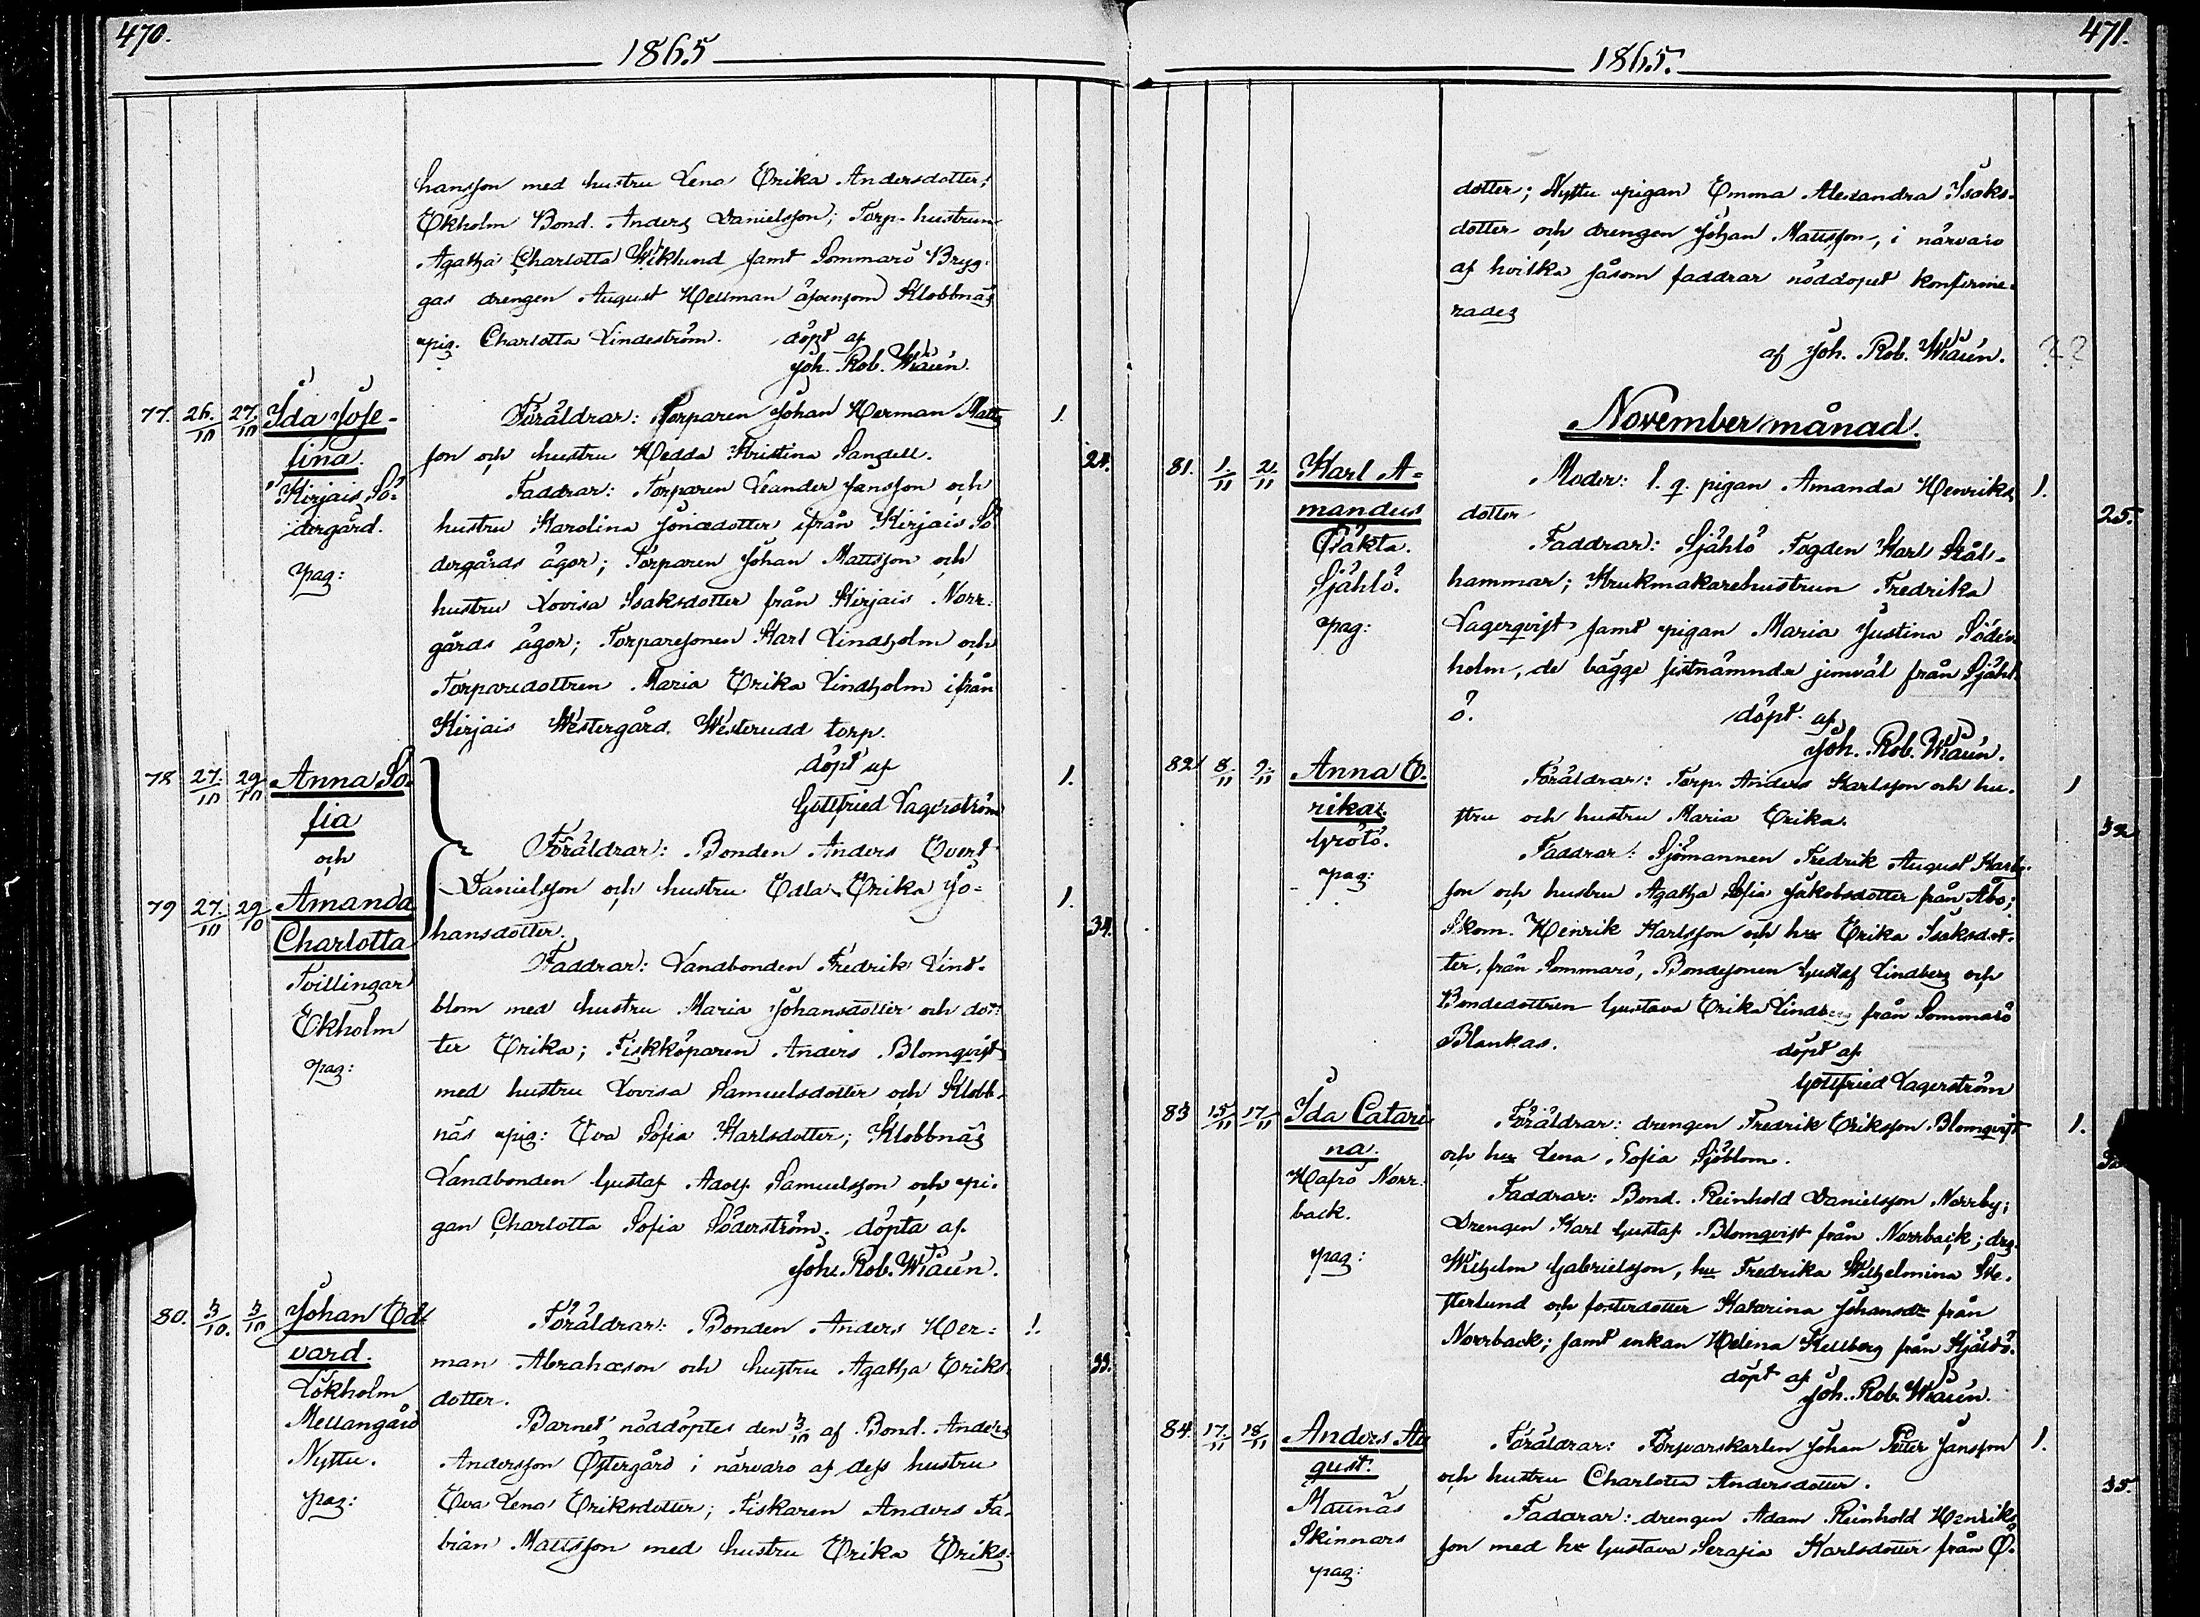 470.
1865
hansson med hustru Lena Erika Andersdotter;
Ekholm Bond. Anders Danielsson; Torp. hustrun
Agatha Charlotta Wiklund samt Sommarö Bryg-
gas drengen August Hellman äfvensom Klobbnäs
pig. Charlotta Lindeström. döpt af
Joh. Rob. Wiaun.
77. 26./10 27./10 Ida Jose- Föräldrar: Torparen Johan Herman Matts 1.
fina. son och hustru Hedda Kristina Sandell. 24.
Kirjais Sö- Faddrar: Torparen Leander Jansson och
dergård. hustru Karolina Jonædotter ifrån Kirjais Sö
dergårds ägor; Torparen Johan Mattsson och
pag: hustru Lovisa Isaksdotter från Kirjais Norr-
gårds ägor; Torparesonen Karl Lindholm och
Torparedottren Maria Erika Lindholm ifrån
Kirjais Westergård Westerudd torp.
döpt af
Gottfried Lagerström
78 27./10 29/10 Anna So- 1.
fia
och Föräldrar: Bonden Anders Evert
79 27./10 29/10 Amanda Danielsson och hustru Edla Erika Jo- 1.
Charlotta hansdotter. 34.
Tvillingar Faddrar: Landbonden Fredrik Lind-
Ekholm blom med hustru Maria Johansdotter och dot-
pag: ter Erika; Fiskköparen Anders Blomqvist
med hustru Lovisa Samuelsdotter och Klobb-
näs pig: Eva Sofia Karlsdotter; Klobbnäs
Landbonden Gustaf Adolf Samuelsson och pi-
gan Charlotta Sofia Söderström. döpta af
Joh. Rob. Wiaun.
80. 3/10. 3/10 Johan Ed- Föräldrar: Bonden Anders Her- 1.
vard. man Abrahæson och hustru Agatha Eriks- 33.
Lökholm dotter.
Mellangård Barnet nöddöptes den 3/10 af Bond. Anders
Nyttu. Andersson Östergård i närvaro af dess hustru
pag: Eva Lena Eriksdotter; Fiskaren Anders Fa-
bian Mattsson med hustru Erika Eriks-
471.
1865.
dotter; Nyttu pigan Emma Alexandra Isaks-
dotter och drengen Johan Mattsson, i närvaro
af hvilka såsom faddrar nöddopet konfirme-
rades
af Joh. Rob. Wiaun. ??
November månad.
81. 1./11 2./11 Karl A- Moder: l. q. pigan Amanda Henriks 1.
mandus dotter 25.
Oäkta. Faddrar: Själlö Fogden Karl Stål-
Själlö. hammar; Krukmakarehustrun Fredrika
pag: Lagerqvist samt pigan Maria Justina Söder-
holm, de bägge sistnämnda jemväl från Själ-
ö. döpt af
Joh. Rob. Wiaun.
82 8./11 9./11 Anna E- Föräldrar: Torp. Anders Karlsson och hu- 1
rika. stru och hustru Maria Erika. 32
Grötö. Faddrar: Sjömannen Fredrik August Karls-
pag: son och hustru Agatha Sofia Jakobsdotter från Åbo;
Skom. Henrik Karlsson och hu Erika Isaksdot-
ter, från Sommarö, Bondesonen Gustaf Lindberg och
Bondedottren Gustava Erika Lindberg från Sommarö
Blankas. döpt af
Gottfried Lagerström
83 15/11 17/11 Ida Catari- Föräldrar: drengen Fredrik Eriksson Blomqvist 1.
na. och hu Lena Sofia Sjöblom.
Hafrö Norr- Faddrar: Bond. Reinhold Danielsson Norrby;
back. Drengen Karl Gustaf Blomqvist från Norrback; drg.
pag: Wilhelm Gabrielsson, hu Fredrika Wilhelmina We-
sterlund och fosterdotter Katarina Johansdr från
Norrback; samt enkan Helena Kellberg från Kjäldö.
döpt af
Joh. Rob. Wiaun.
84. 17./11 18/11 Anders Au Föräldrar: Förpaxkarlen Johan Peter Jansson 1.
gust. och hustru Charlotta Andersdotter. 35.
Mattnäs Faddrar: drengen Adam Reinhold Henriks
Skinnars son med hu Gustava Serafia Karlsdotter från Ö-
pag: